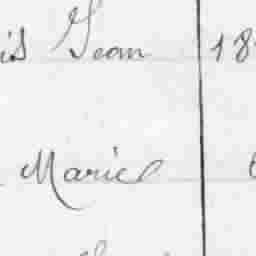 is Jean 18
Marie